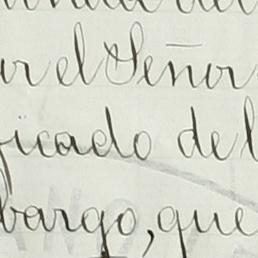 ar el Señor
ficado del
bargo, que